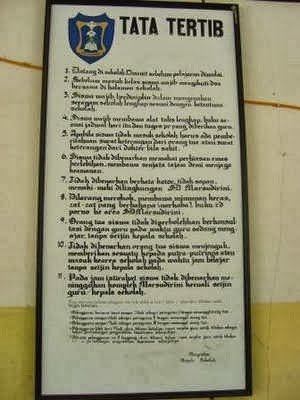 TATA TERTIB
1. Datang di sekolah menit sebelum pelajaran dimulai.
2. Sebelum masuk kelas siswa wajib mengikuti doa
bersama di halaman sekolah.
3. Siswa wajib berdisiplin dalam mengenakan
seragam sekolah lengkap sesuai dengan ketentuan
sekolah.
4. Siswa wajib membawa alat tulis lengkap, buku se-
suai jadwal hari itu dan tugas pr yang diberikan guru.
5. Apabila siswa tidak masuk sekolah harus ada pembe-
ritahuan surat keterangan dari orang tua atau surat
keterangan dari dokter bila sakit.
6. Siswa tidak dibenarkan memakai perhiasan emas
berlebihan, membawa senjata tajam demi menjaga
keamanan.
7. Tidak dibenarkan berkata kotor, tidak sopan,
memaki-maki dilingkungan SD Marsudirini.
8. Dilarang merokok, membawa minuman keras,
zat-zat yang berbahaya (narkoba), buku/cd
porno ke area SD Marsudirini.
9. Orang tua siswa tidak diperbolehkan berkonsul-
tasi dengan guru pada waktu guru sedang meng-
ajar, tanpa seijin kepala sekolah.
10. Tidak dibenarkan orang tua siswa menjenguk,
memberikan sesuatu kepada putra-putrinya atau
masuk kearea sekolah pada waktu jam belajar
tanpa seijin kepala sekolah.
11. Pada jam istirahat siswa tidak dibenarkan me-
ninggalkan komplek Marsudirini kecuali seijin
guru/kepala sekolah.
Mengetahui
Kepala Sekolah